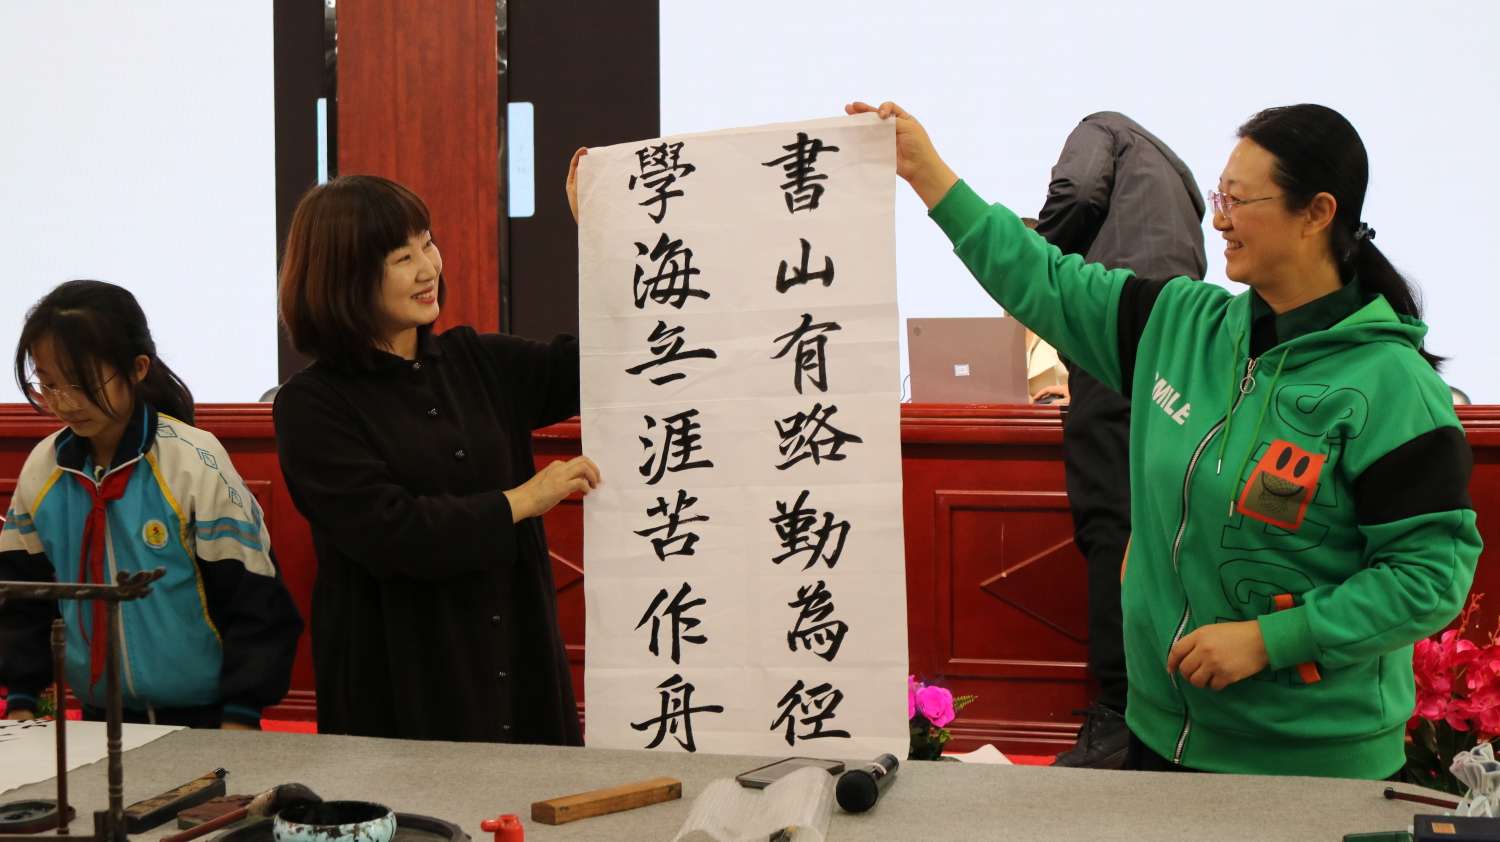 書山有路勤為徑
學海无涯苦作舟
SMILE